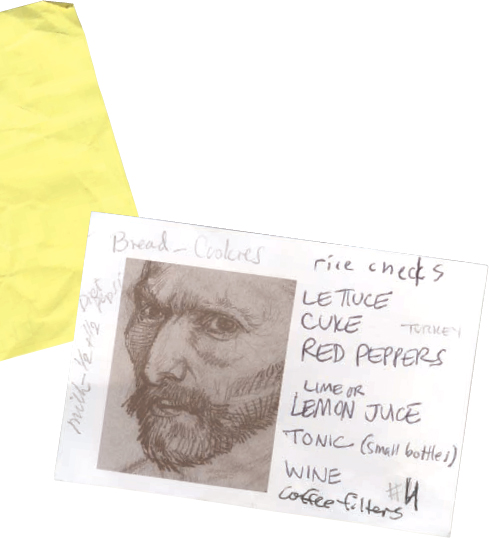 Bread - Cookies
rice checks
LETTUCE
CUKE
TURKEY
RED PEPPERS
LIME OR
LEMON JUICE
TONIC (small bottles)
WINE
coffee filters #4
Diet
pepsi
milk - 1/2 + 1/2